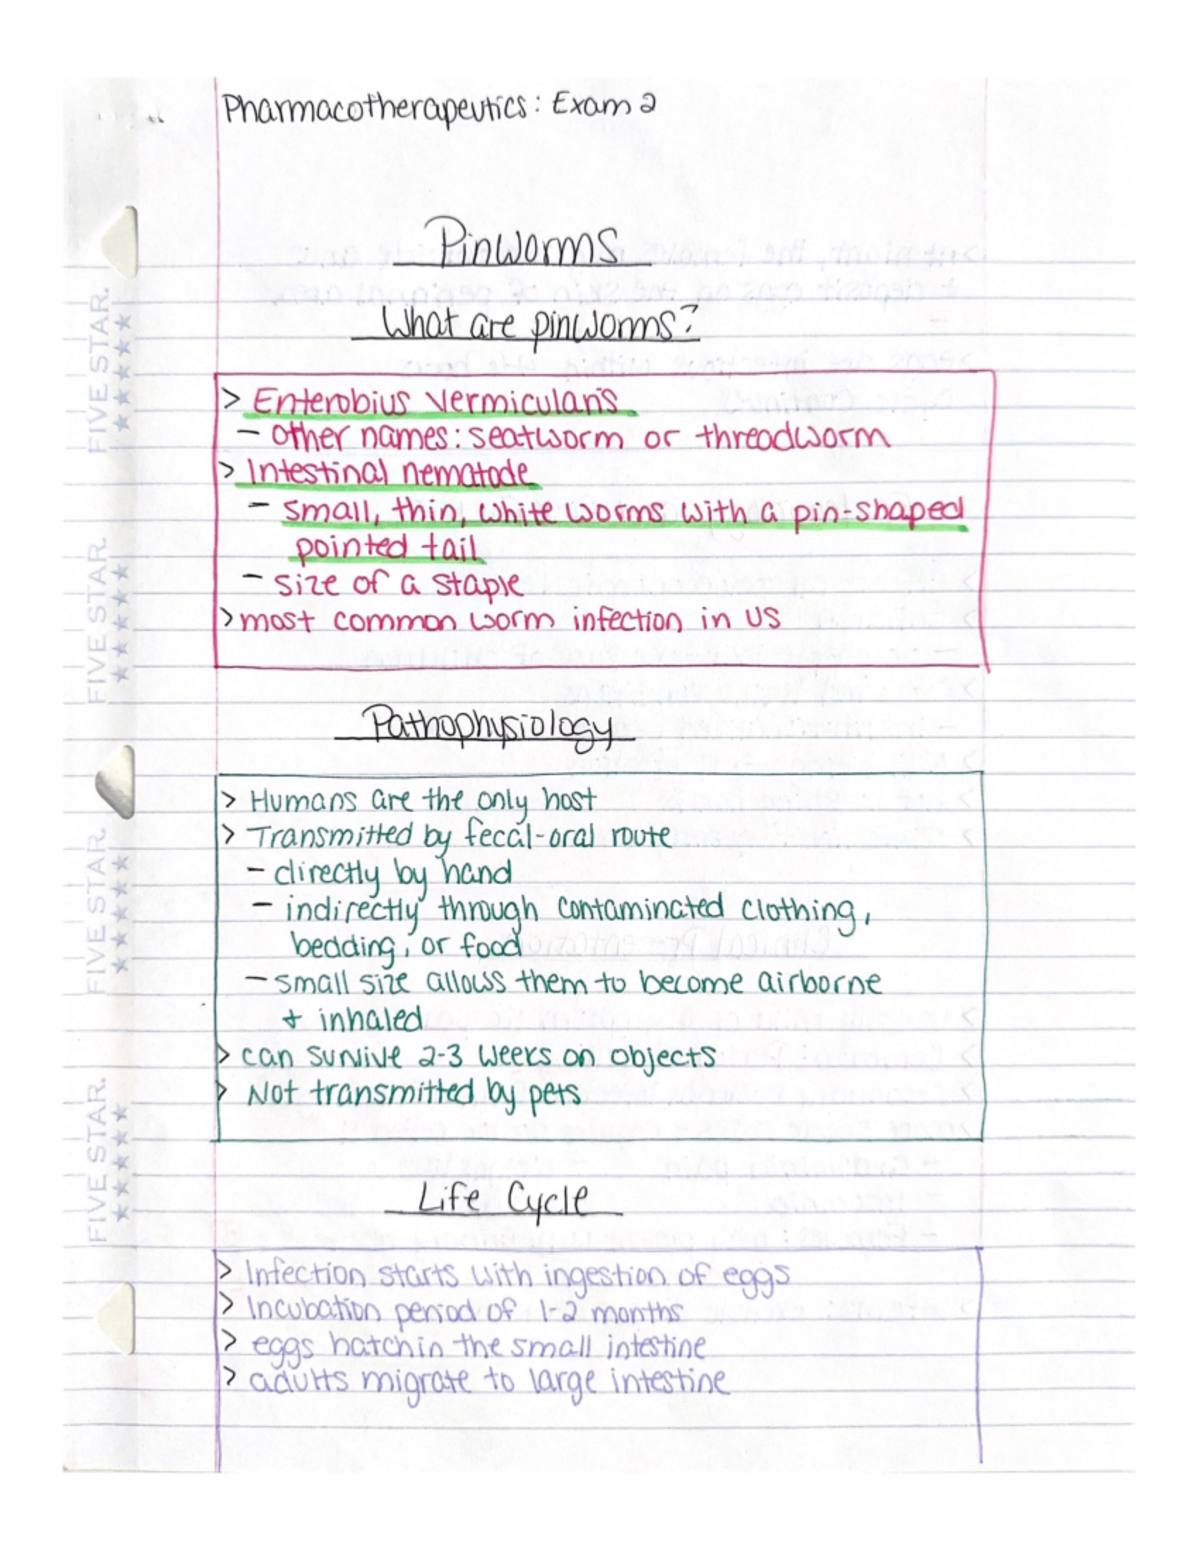 Pharmacotherapeutics: Exam 2
Pinworms
What are pinworms?
> Enterobius vermicularis
- other names: seatworm or threadworm
> Intestinal nematode
- small, thin, white worms with a pin-shaped
pointed tail
- size of a staple
> most common worm infection in US
Pathophysiology
> Humans are the only host
> Transmitted by fecal-oral route
- directly by hand
- indirectly through contaminated clothing,
bedding, or food
- small size allows them to become airborne
+ inhaled
> can survive 2-3 weeks on objects
> Not transmitted by pets
Life Cycle
> Infection starts with ingestion of eggs
> Incubation period of 1-2 months
> eggs hatch in the small intestine
> adults migrate to large intestine
FIVE STAR.
FIVE STAR.
FIVE STAR.
FIVE STAR.